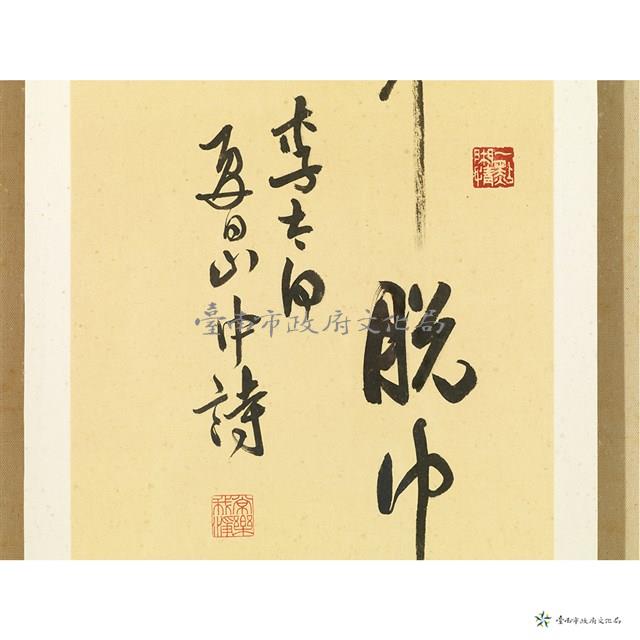 脫巾
李太白
夏日山中詩
常樂
我淨
臺南市政府文化局
臺南市政府文化局